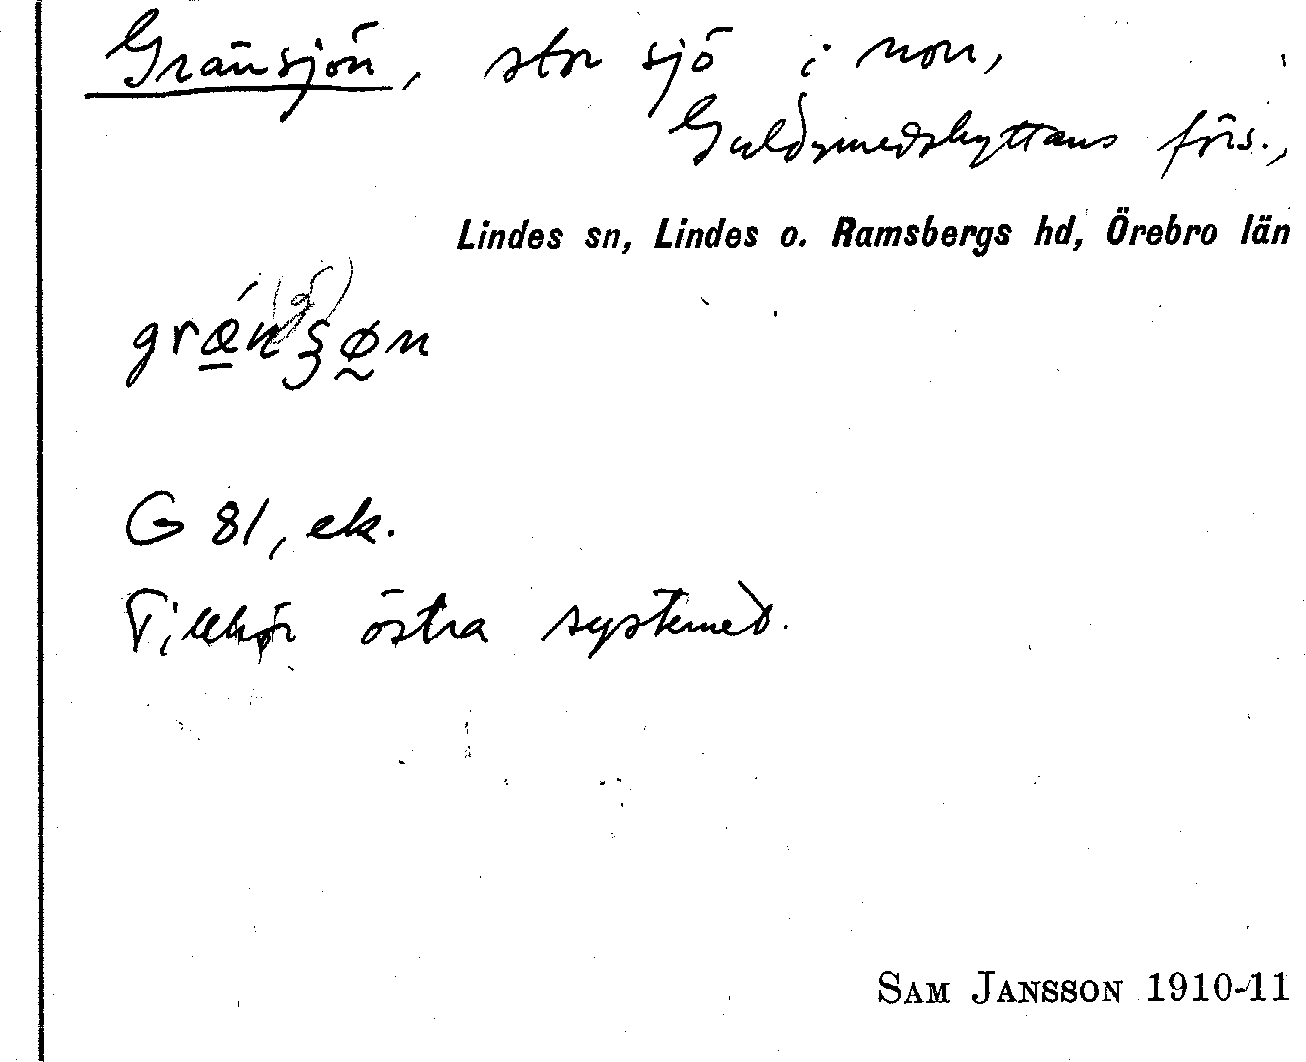 Gränsjön, stor sjö i norr,
Guldsmedshyttans förs.,
Lindes sn, Lindes o. Ramsbergs hd, Örebro län
G 81, ek.
Tillhör östra systemet.
SAM JANSSON 1910-11